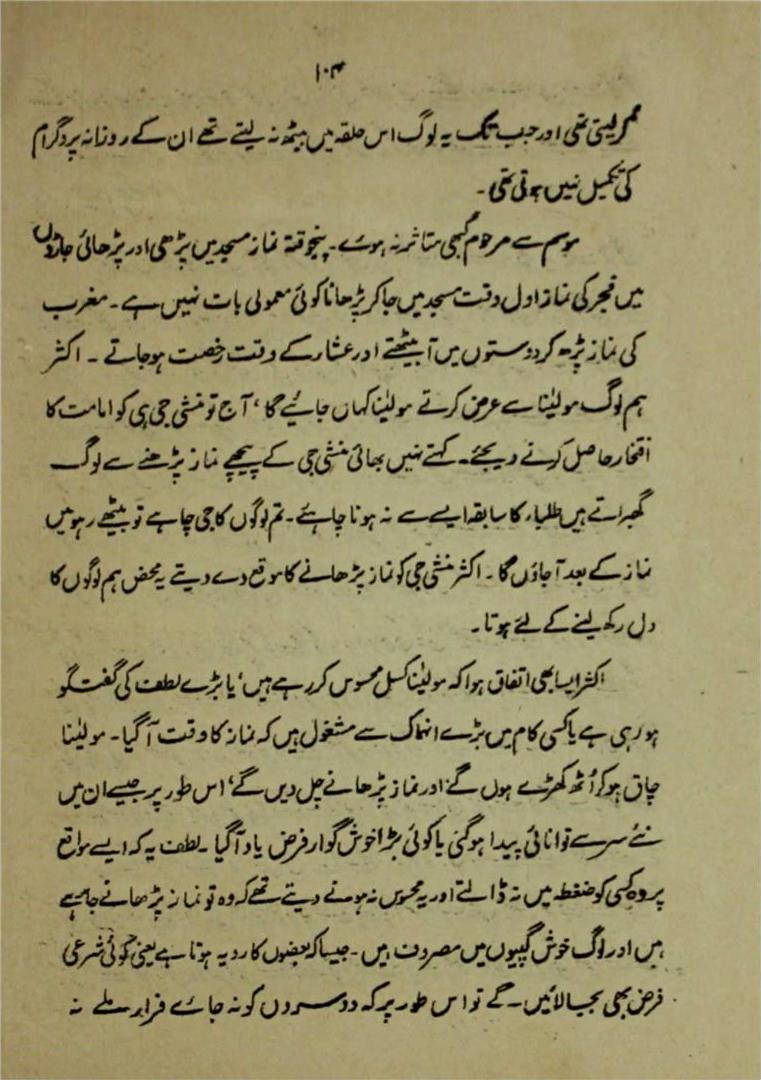 ۱۰۴
گھر لیتی تھی اور جب تک یہ لوگ اس حلقہ میں بیٹھ نہ لیتے تھے ان کے روزانہ پروگرام
کی تکمیل نہیں ہوتی تھی۔
موسم سے مرحوم کبھی متاثر نہ ہوئے۔ پنجوقتہ نماز مسجد میں پڑھی اور پڑھائی جاڑوں
میں فجر کی نماز اول وقت مسجد میں جا کر پڑھانا کوئی معمولی بات نہیں ہے۔ مغرب
کی نماز پڑھ کر دوستوں میں آ بیٹھتے اور عشار کے وقت رخصت ہو جاتے ۔ اکثر
ہم لوگ مولینٰا سے عرض کرتے مولینٰا کہاں جائیے گا، آج تو منشی جی ہی کو امامت کا
افتخار حاصل کرنے دیجئے۔ کہتے نہیں بھائی منشی جی کے پیچھے نماز پڑھنے سے لوگ
گھبراتے ہیں طلباء کا سابقہ ایسے سے نہ ہونا چاہئے۔ تم لوگوں کا جی چاہے تو بیٹھے رہو میں
نماز کے بعد آجاؤں گا۔ اکثر منشی جی کو نماز پڑھانے کا موقع دے دیتے یہ محض ہم لوگوں کا
دل رکھ لینے کے لئے ہوتا۔
اکثر ایسا بھی اتفاق ہوا کہ مولینٰا کسل محسوس کر رہے ہیں، یا بڑے لطف کی گفتگو
ہو رہی ہے یا کسی کام میں بڑے انہماک سے مشغول ہیں کہ نماز کا وقت آ گیا۔ مولینٰا
چاق ہو کر اُٹھ کھڑے ہوں گے اور نماز پڑھانے چل دیں گے، اس طور پر جیسے ان میں
نئے سرسے توانائی پیدا ہو گئی یا کوئی بڑا خوش گوار فرض یاد آ گیا۔ لطف یہ کہ ایسے مواقع
پر وہ کسی کو ضغطہ میں نہ ڈالتے اور یہ محسوس نہ ہونے دیتے تھے کہ وہ تو نماز پڑھانے جا رہے
ہیں اور لوگ خوش گپیوں میں مصروف ہیں۔ جیسا کہ بعضوں کا رویہ ہوتا ہے یعنی کوئی شرعی
فرض بھی بجا لائیں۔ گے تو اس طور پر کہ دوسروں کو نہ جائے فرار ملے نہ